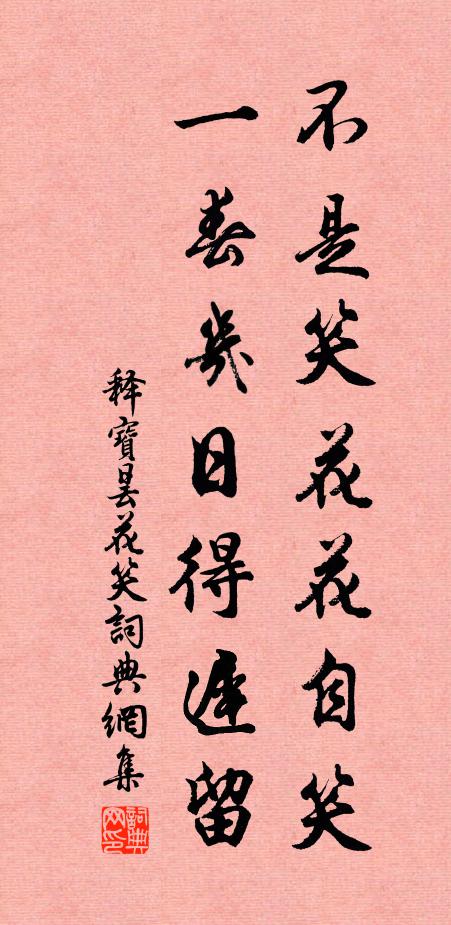 不是笑花花自笑
一春幾日得遲留
釋寶曇花笑詞典網集
詞典网印